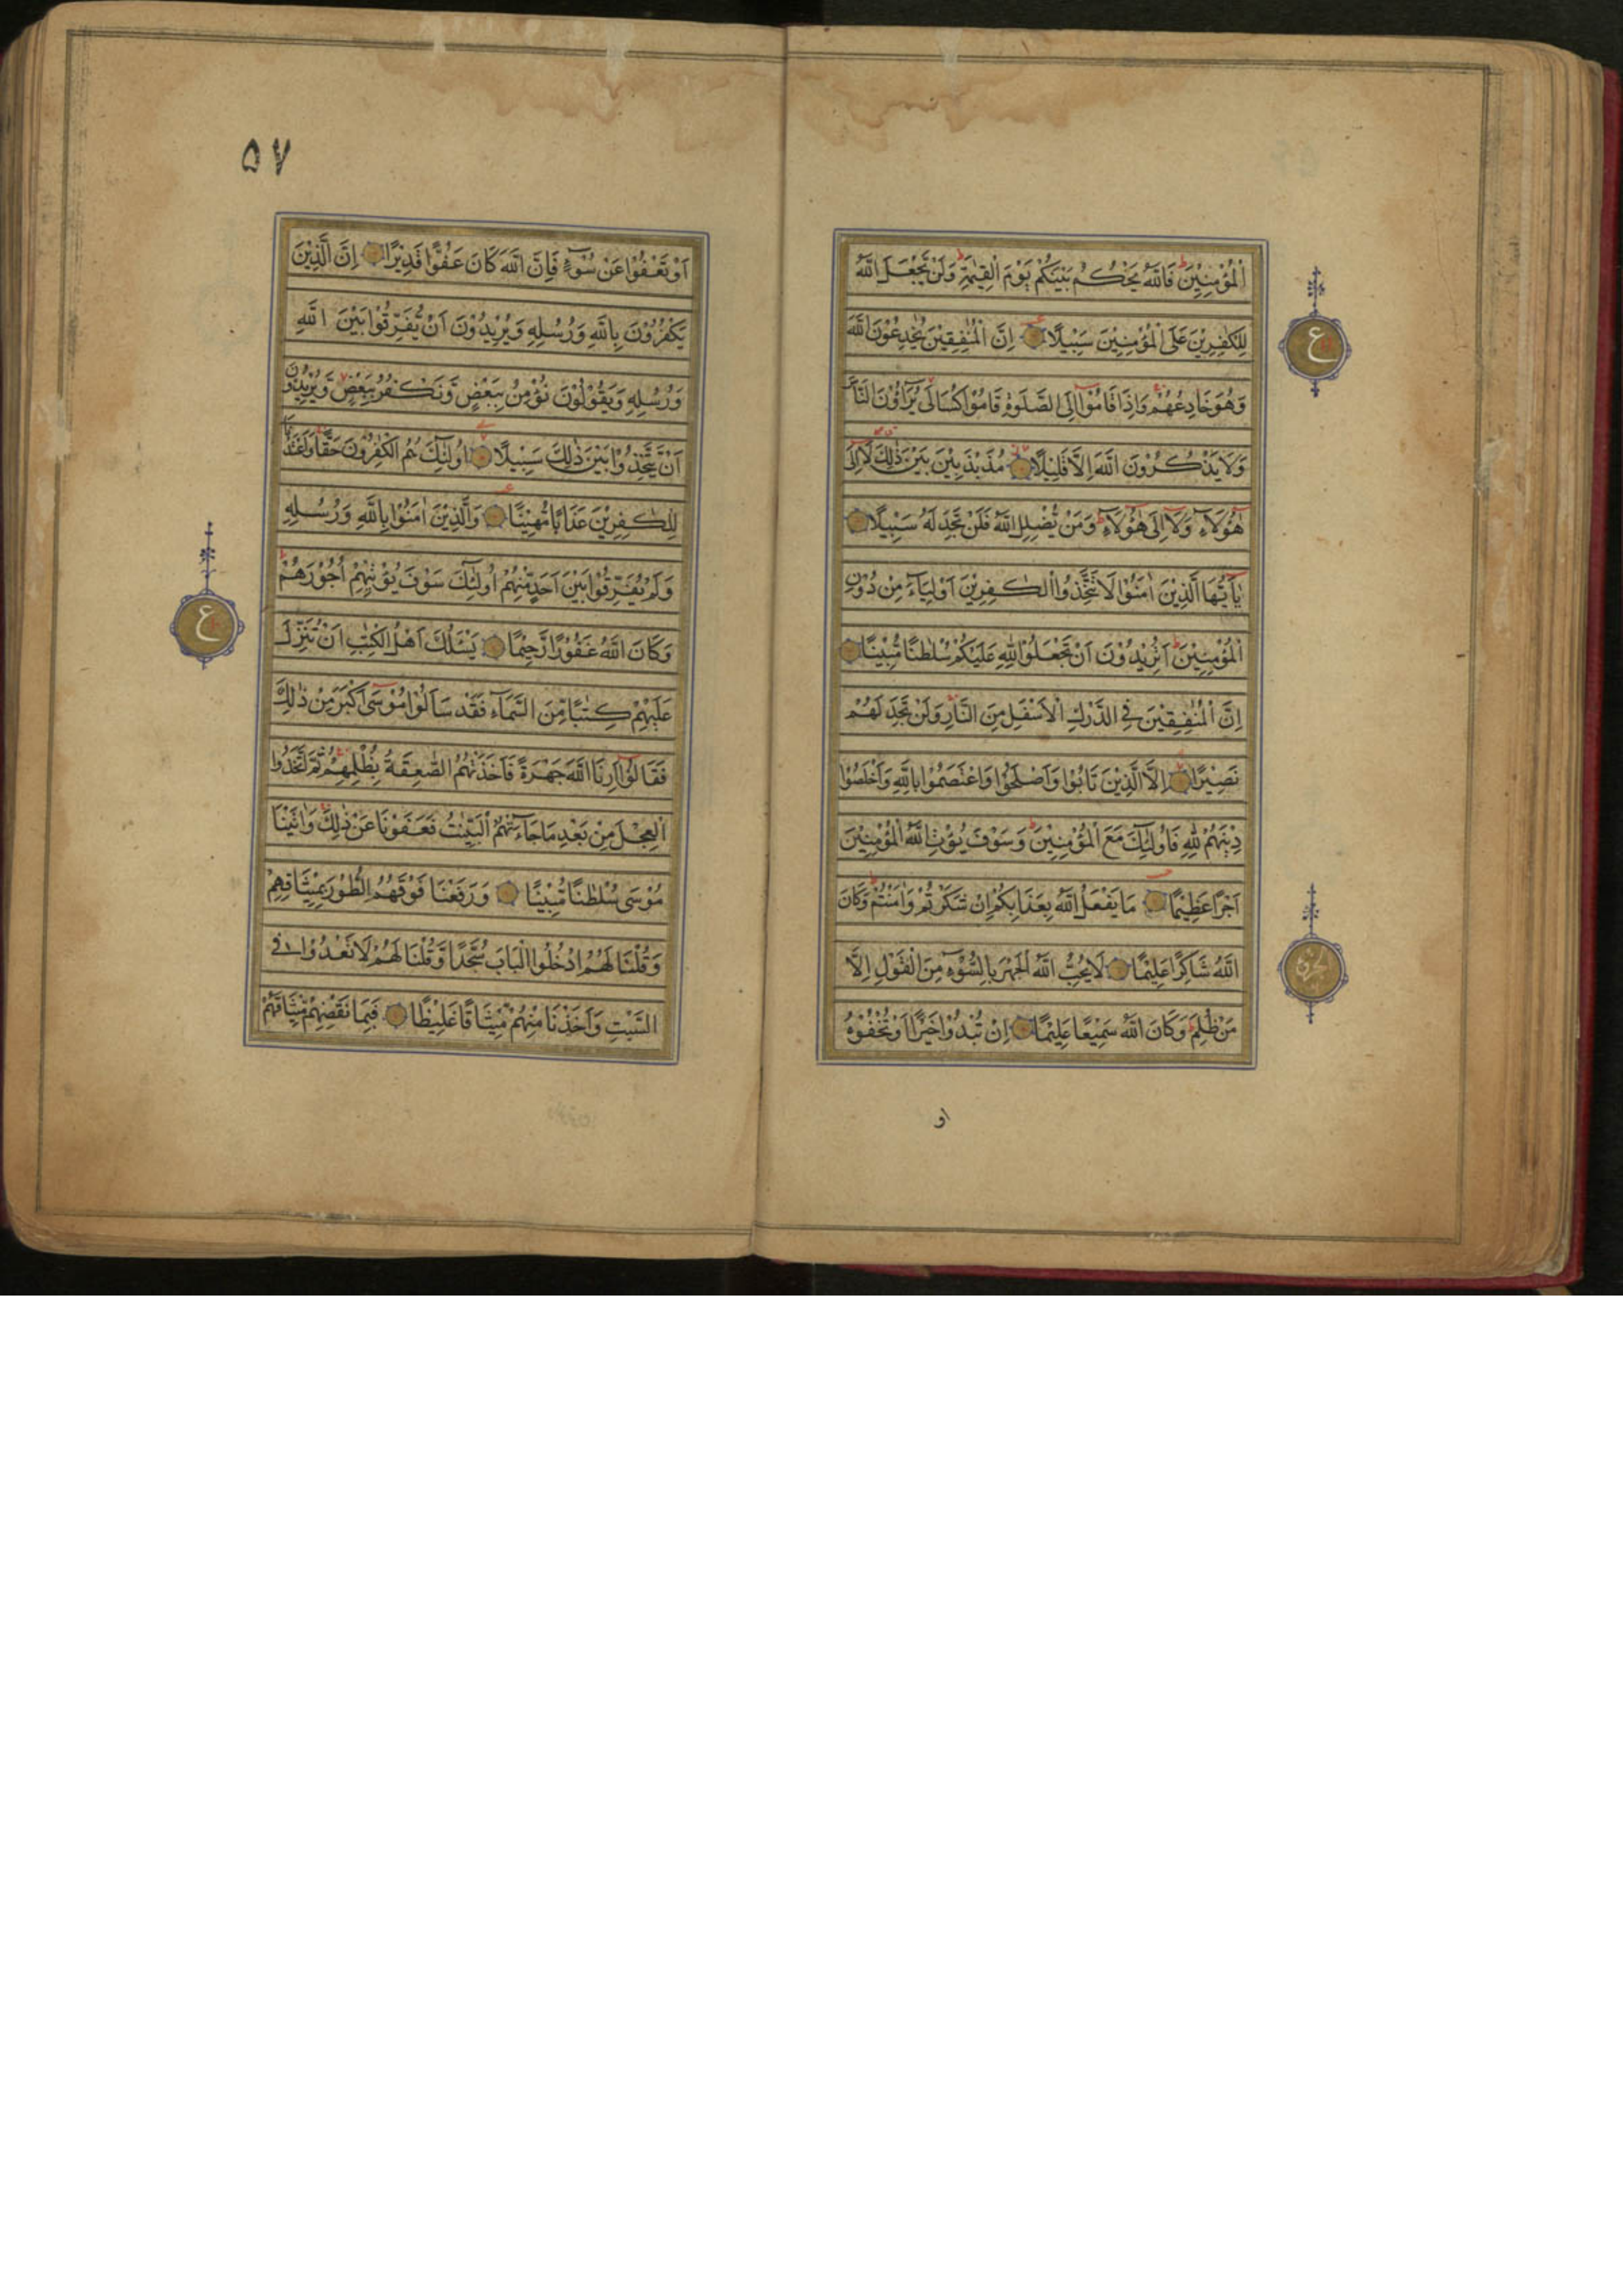 الْمُؤْمِنِيْنَ فَاللّٰهُ يَحْكُمُ بَيْنَكُمْ يَوْمَ الْقِيٰمَةِ وَلَنْ يَّجْعَلَ اللّٰهُ
لِلْكٰفِرِيْنَ عَلَى الْمُؤْمِنِيْنَ سَبِيْلًا اِنَّ الْمُنٰفِقِيْنَ يُخٰدِعُوْنَ اللّٰهَ
وَهُوَ خَادِعُهُمْ وَاِذَا قَامُوْا اِلَى الصَّلٰوةِ قَامُوْا كُسَالٰى يُرَآؤُنَ النَّاسَ
وَلَا يَذْكُرُوْنَ اللّٰهَ اِلَّا قَلِيْلًا مُذَبْذَبِيْنَ بَيْنَ ذٰلِكَ لَا اِلٰى
هٰؤُلَآءِ وَلَا اِلٰى هٰؤُلَآءِ وَمَنْ يُّضْلِلِ اللّٰهُ فَلَنْ تَجِدَ لَهُ سَبِيْلًا
يٰاَيُّهَا الَّذِيْنَ اٰمَنُوْا لَا تَتَّخِذُوا الْكٰفِرِيْنَ اَوْلِيَآءَ مِنْ دُوْنِ
الْمُؤْمِنِيْنَ اَتُرِيْدُوْنَ اَنْ تَجْعَلُوْا لِلّٰهِ عَلَيْكُمْ سُلْطٰنًا مُّبِيْنًا
اِنَّ الْمُنٰفِقِيْنَ فِي الدَّرْكِ الْاَسْفَلِ مِنَ النَّارِ وَلَنْ تَجِدَ لَهُمْ
نَصِيْرًا اِلَّا الَّذِيْنَ تَابُوْا وَاَصْلَحُوْا وَاعْتَصَمُوْا بِاللّٰهِ وَاَخْلَصُوْا
دِيْنَهُمْ لِلّٰهِ فَاُولٰئِكَ مَعَ الْمُؤْمِنِيْنَ وَسَوْفَ يُؤْتِ اللّٰهُ الْمُؤْمِنِيْنَ
اَجْرًا عَظِيْمًا مَا يَفْعَلُ اللّٰهُ بِعَذَابِكُمْ اِنْ شَكَرْتُمْ وَاٰمَنْتُمْ وَكَانَ
اللّٰهُ شَاكِرًا عَلِيْمًا لَا يُحِبُّ اللّٰهُ الْجَهْرَ بِالسُّوْٓءِ مِنَ الْقَوْلِ اِلَّا
مَنْ ظُلِمَ وَكَانَ اللّٰهُ سَمِيْعًا عَلِيْمًا اِنْ تُبْدُوْا خَيْرًا اَوْ تُخْفُوْهُ
او
ع
الحزب
٥٧
اَوْ تَعْفُوْا عَنْ سُوْٓءٍ فَاِنَّ اللّٰهَ كَانَ عَفُوًّا قَدِيْرًا اِنَّ الَّذِيْنَ
يَكْفُرُوْنَ بِاللّٰهِ وَرُسُلِهِ وَيُرِيْدُوْنَ اَنْ يُّفَرِّقُوْا بَيْنَ اللّٰهِ
وَرُسُلِهِ وَيَقُوْلُوْنَ نُؤْمِنُ بِبَعْضٍ وَّنَكْفُرُ بِبَعْضٍ وَّيُرِيْدُوْنَ
اَنْ يَّتَّخِذُوْا بَيْنَ ذٰلِكَ سَبِيْلًا اُولٰٓئِكَ هُمُ الْكٰفِرُوْنَ حَقًّا وَاَعْتَدْنَا
لِلْكٰفِرِيْنَ عَذَابًا مُّهِيْنًا وَالَّذِيْنَ اٰمَنُوْا بِاللّٰهِ وَرُسُلِهِ
وَلَمْ يُفَرِّقُوْا بَيْنَ اَحَدٍ مِّنْهُمْ اُولٰٓئِكَ سَوْفَ يُؤْتِيْهِمْ اُجُوْرَهُمْ
وَكَانَ اللّٰهُ غَفُوْرًا رَّحِيْمًا يَسْئَلُكَ اَهْلُ الْكِتٰبِ اَنْ تُنَزِّلَ
عَلَيْهِمْ كِتٰبًا مِّنَ السَّمَآءِ فَقَدْ سَاَلُوْا مُوْسٰى اَكْبَرَ مِنْ ذٰلِكَ
فَقَالُوْا اَرِنَا اللّٰهَ جَهْرَةً فَاَخَذَتْهُمُ الصّٰعِقَةُ بِظُلْمِهِمْ ثُمَّ اتَّخَذُوا
الْعِجْلَ مِنْ بَعْدِ مَا جَآءَتْهُمُ الْبَيِّنٰتُ فَعَفَوْنَا عَنْ ذٰلِكَ وَاٰتَيْنَا
مُوْسٰى سُلْطٰنًا مُّبِيْنًا وَرَفَعْنَا فَوْقَهُمُ الطُّوْرَ بِمِيْثَاقِهِمْ
وَقُلْنَا لَهُمُ ادْخُلُوا الْبَابَ سُجَّدًا وَّقُلْنَا لَهُمْ لَا تَعْدُوْا فِي
السَّبْتِ وَاَخَذْنَا مِنْهُمْ مِّيْثَاقًا غَلِيْظًا فَبِمَا نَقْضِهِمْ مِّيْثَاقَهُمْ
ع